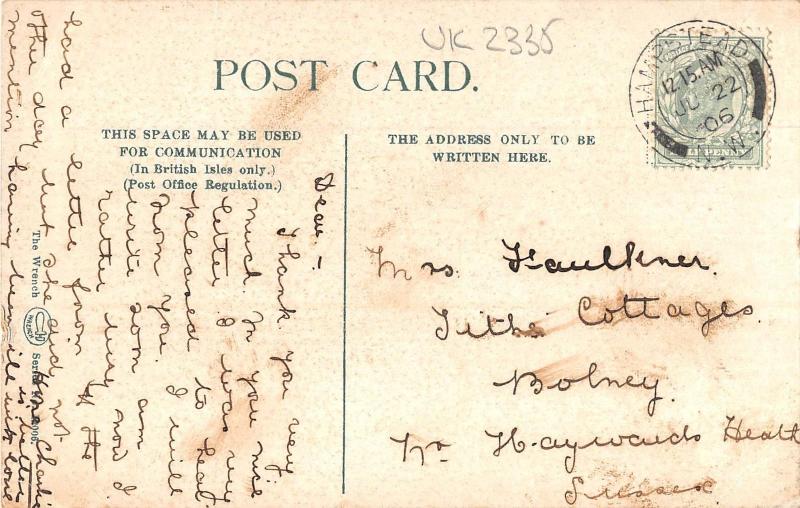 UK 2335
POST CARD.
THIS SPACE MAY BE USED
FOR COMMUNICATION
(In British Isles only.)
(Post Office Regulation.)
THE ADDRESS ONLY TO BE
WRITTEN HERE.
HAMPSTEAD
12.15 AM
JU 22
06
N.W.
Mrs. Faulkner.
Tithe Cottages.
Bolney.
Nr Haywards Heath
Sussex.
Dear –
Thank you very
much for you nice
letter I was very
pleased to hear
from you. I will
write soon am
rather busy now I
had a letter from
other day but she did not
mention having been ill with love
Charlie
is better
The Wrench
WRENCH
Series